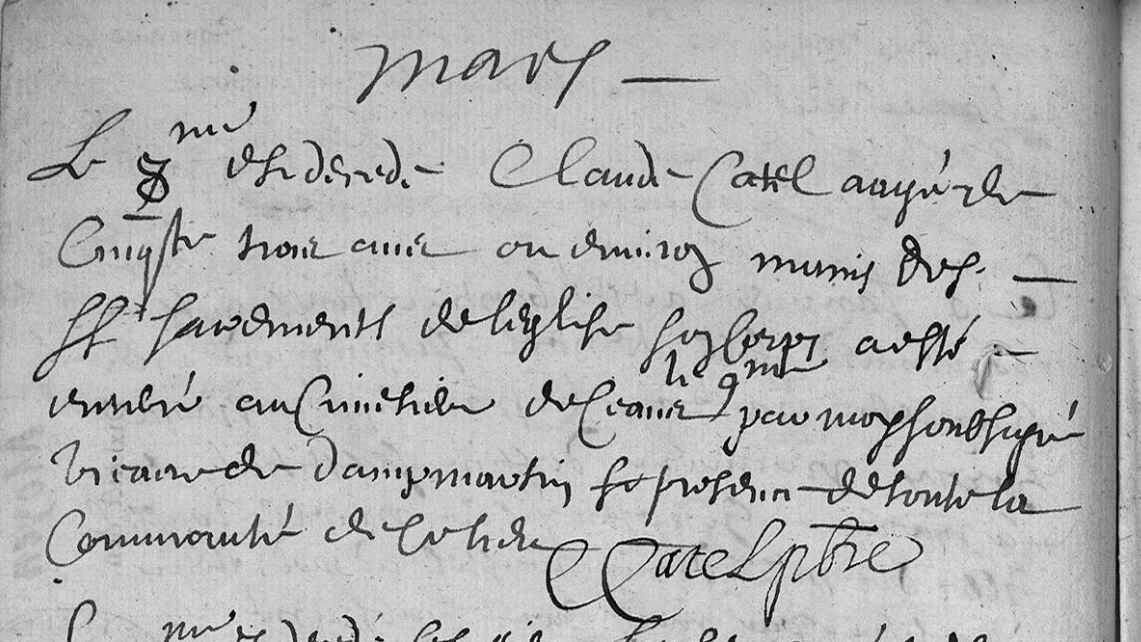 mars
Le 8me est décédé Claude Catel aagé de
Cinqte trois ans ou environ munis des
SS sacrements de l'eglise son corps a esté
enterré au Cimetiere de ceans le 9me par moy soubsigné
vicaire de Dampmartin en presence de toute la
Communauté de
C Catel pbre